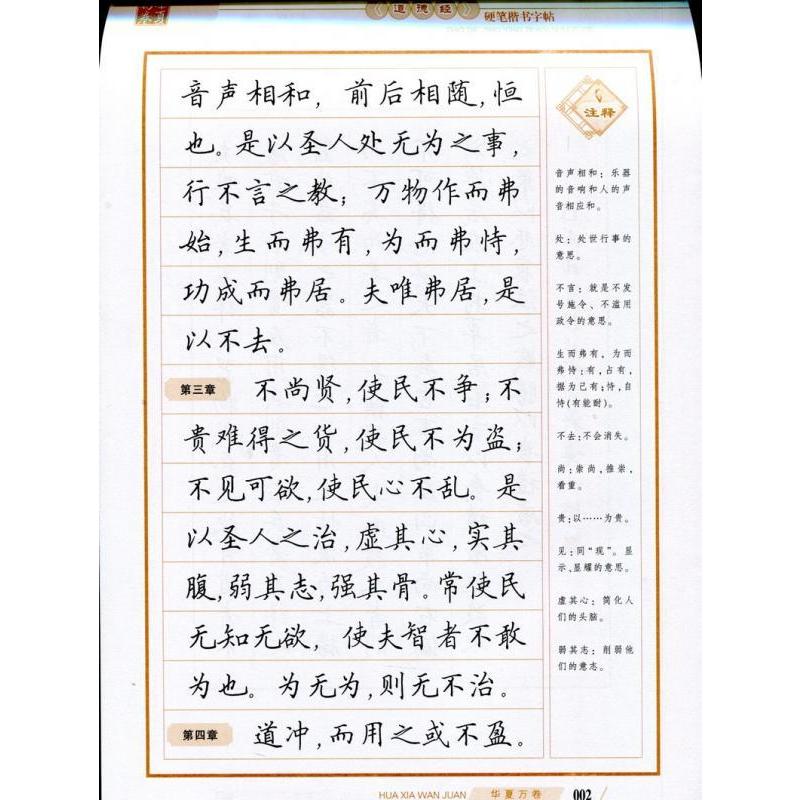 华夏
《道德经》
硬笔楷书字帖
音声相和，前后相随，恒
也。是以圣人处无为之事，
行不言之教；万物作而弗
始，生而弗有，为而弗恃，
功成而弗居。夫唯弗居，是
以不去。
第三章 不尚贤，使民不争；不
贵难得之货，使民不为盗；
不见可欲，使民心不乱。是
以圣人之治，虚其心，实其
腹，弱其志，强其骨。常使民
无知无欲，使夫智者不敢
为也。为无为，则无不治。
第四章 道冲，而用之或不盈。
注释
音声相和：乐器
的音响和人的声
音相应和。
处：处世行事的
意思。
不言：就是不发
号施令、不滥用
政令的意思。
生而弗有，为而
弗恃：有，占有，
据为己有；恃，自
恃(有能耐)。
不去：不会消失。
尚：崇尚，推崇，
看重。
贵：以……为贵。
见：同“现”。显
示、显耀的意思。
虚其心：简化人
们的头脑。
弱其志：削弱他
们的意志。
HUA XIA WAN JUAN
华夏万卷
002